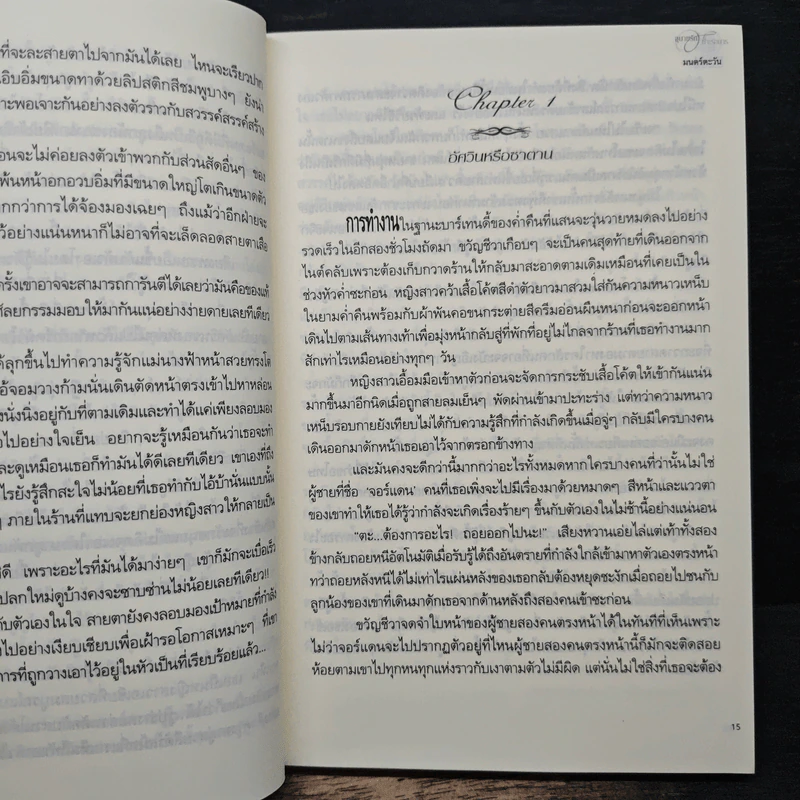 ที่จะละสายตาไปจากมันได้เลย ไหนจะเรียวปาก
เอิบอิ่มขนาดทาด้วยลิปสติกสีชมพูบางๆ ยังน่า
าะพอเจาะกันอย่างลงตัวราวกับสวรรค์สรรค์สร้าง
อนจะไม่ค่อยลงตัวเข้าพวกกับส่วนสัดอื่นๆ ของ
พ้นหน้าอกอวบอิ่มที่มีขนาดใหญ่โตเกินขนาดตัว
ากกว่าการได้จ้องมองเฉยๆ ถึงแม้ว่าอีกฝ่ายจะ
ว้อย่างแน่นหนาก็ไม่อาจที่จะเล็ดลอดสายตาเสือ
ครั้งเขาอาจจะสามารถการันตีได้เลยว่ามันคือของแท้
ศัลยกรรมมอบให้มากันแน่อย่างง่ายดายเลยทีเดียว
ค์ลุกขึ้นไปทำความรู้จักแม่นางฟ้าหน้าสวยทรงโต
อ้จอมวางก้ามนั่นเดินตัดหน้าตรงเข้าไปหาหล่อน
งนั่งนิ่งอยู่กับที่ตามเดิมและทำได้แค่เพียงลอบมอง
อไปอย่างใจเย็น อยากจะรู้เหมือนกันว่าเธอจะทำ
ละดูเหมือนเธอก็ทำมันได้ดีเลยทีเดียว เขาเองที่ถึง
ไรยังรู้สึกสะใจไม่น้อยที่เธอทำกับไอ้บ้านั่นแบบนั้น
ๆ ภายในร้านที่แทบจะยกย่องหญิงสาวให้กลายเป็น
ดี เพราะอะไรที่มันได้มาง่ายๆ เขาก็มักจะเบื่อเร็ว
ปลกใหม่ดูบ้างคงจะซาบซ่านไม่น้อยเลยทีเดียว!!
กับตัวเองในใจ สายตายังคงลอบมองเป้าหมายที่กำลัง
ไปอย่างเงียบเชียบเพื่อเฝ้ารอโอกาสเหมาะๆ ที่เขา
การที่ถูกวางเอาไว้อยู่ในหัวเป็นที่เรียบร้อยแล้ว...
มนตร์ตะวัน
Chapter 1
อัศวินหรือซาตาน
การทำงานในฐานะบาร์เทนดี้ของค่ำคืนที่แสนจะวุ่นวายหมดลงไปอย่าง
รวดเร็วในอีกสองชั่วโมงถัดมา ขวัญชีวาเกือบๆ จะเป็นคนสุดท้ายที่เดินออกจาก
ไนต์คลับเพราะต้องเก็บกวาดร้านให้กลับมาสะอาดตามเดิมเหมือนที่เคยเป็นใน
ช่วงหัวค่ำซะก่อน หญิงสาวคว้าเสื้อโค้ตสีดำตัวยาวมาสวมใส่กันความหนาวเหน็บ
ในยามค่ำคืนพร้อมกับผ้าพันคอขนกระต่ายสีครีมอ่อนผืนหนาก่อนจะออกหน้า
เดินไปตามเส้นทางเท้าเพื่อมุ่งหน้ากลับสู่ที่พักที่อยู่ไม่ไกลจากร้านที่เธอทำงานมาก
สักเท่าไรเหมือนอย่างทุกๆ วัน
หญิงสาวเอื้อมมือเข้าหาตัวก่อนจะจัดการกระชับเสื้อโค้ตให้เข้ากันแน่น
มากขึ้นมาอีกนิดเมื่อถูกสายลมเย็นๆ พัดผ่านเข้ามาปะทะร่าง แต่ทว่าความหนาว
เหน็บรอบกายยังเทียบไม่ได้กับความรู้สึกที่กำลังเกิดขึ้นเมื่อจู่ๆ กลับมีใครบางคน
เดินออกมาดักหน้าเธอเอาไว้จากตรอกข้างทาง
และมันคงจะดีกว่านี้มากกว่าอะไรทั้งหมดหากใครบางคนที่ว่านั้นไม่ใช่
ผู้ชายที่ชื่อ ‘จอร์แดน’ คนที่เธอเพิ่งจะไปมีเรื่องมาด้วยหมาดๆ สีหน้าและแววตา
ของเขาทำให้เธอได้รู้ว่ากำลังจะเกิดเรื่องร้ายๆ ขึ้นกับตัวเองในไม่ช้านี้อย่างแน่นอน
“ตะ...ต้องการอะไร! ถอยออกไปนะ!” เสียงหวานเอ่ยไล่แต่เท้าทั้งสอง
ข้างกลับถอยหนีอัตโนมัติเมื่อรับรู้ได้ถึงอันตรายที่กำลังใกล้เข้ามาหาตัวเองตรงหน้า
ทว่าถอยหลังหนีได้ไม่เท่าไรแผ่นหลังของเธอกลับต้องหยุดชะงักเมื่อถอยไปชนกับ
ลูกน้องของเขาที่เดินมาดักเธอจากด้านหลังถึงสองคนเข้าซะก่อน
ขวัญชีวาจดจำใบหน้าของผู้ชายสองคนตรงหน้าได้ในทันทีที่เห็นเพราะ
ไม่ว่าจอร์แดนจะไปปรากฏตัวอยู่ที่ไหนผู้ชายสองคนตรงหน้านี้ก็มักจะติดสอย
ห้อยตามเขาไปทุกหนทุกแห่งราวกับเงาตามตัวไม่มีผิด แต่นั่นไม่ใช่สิ่งที่เธอจะต้อง
15